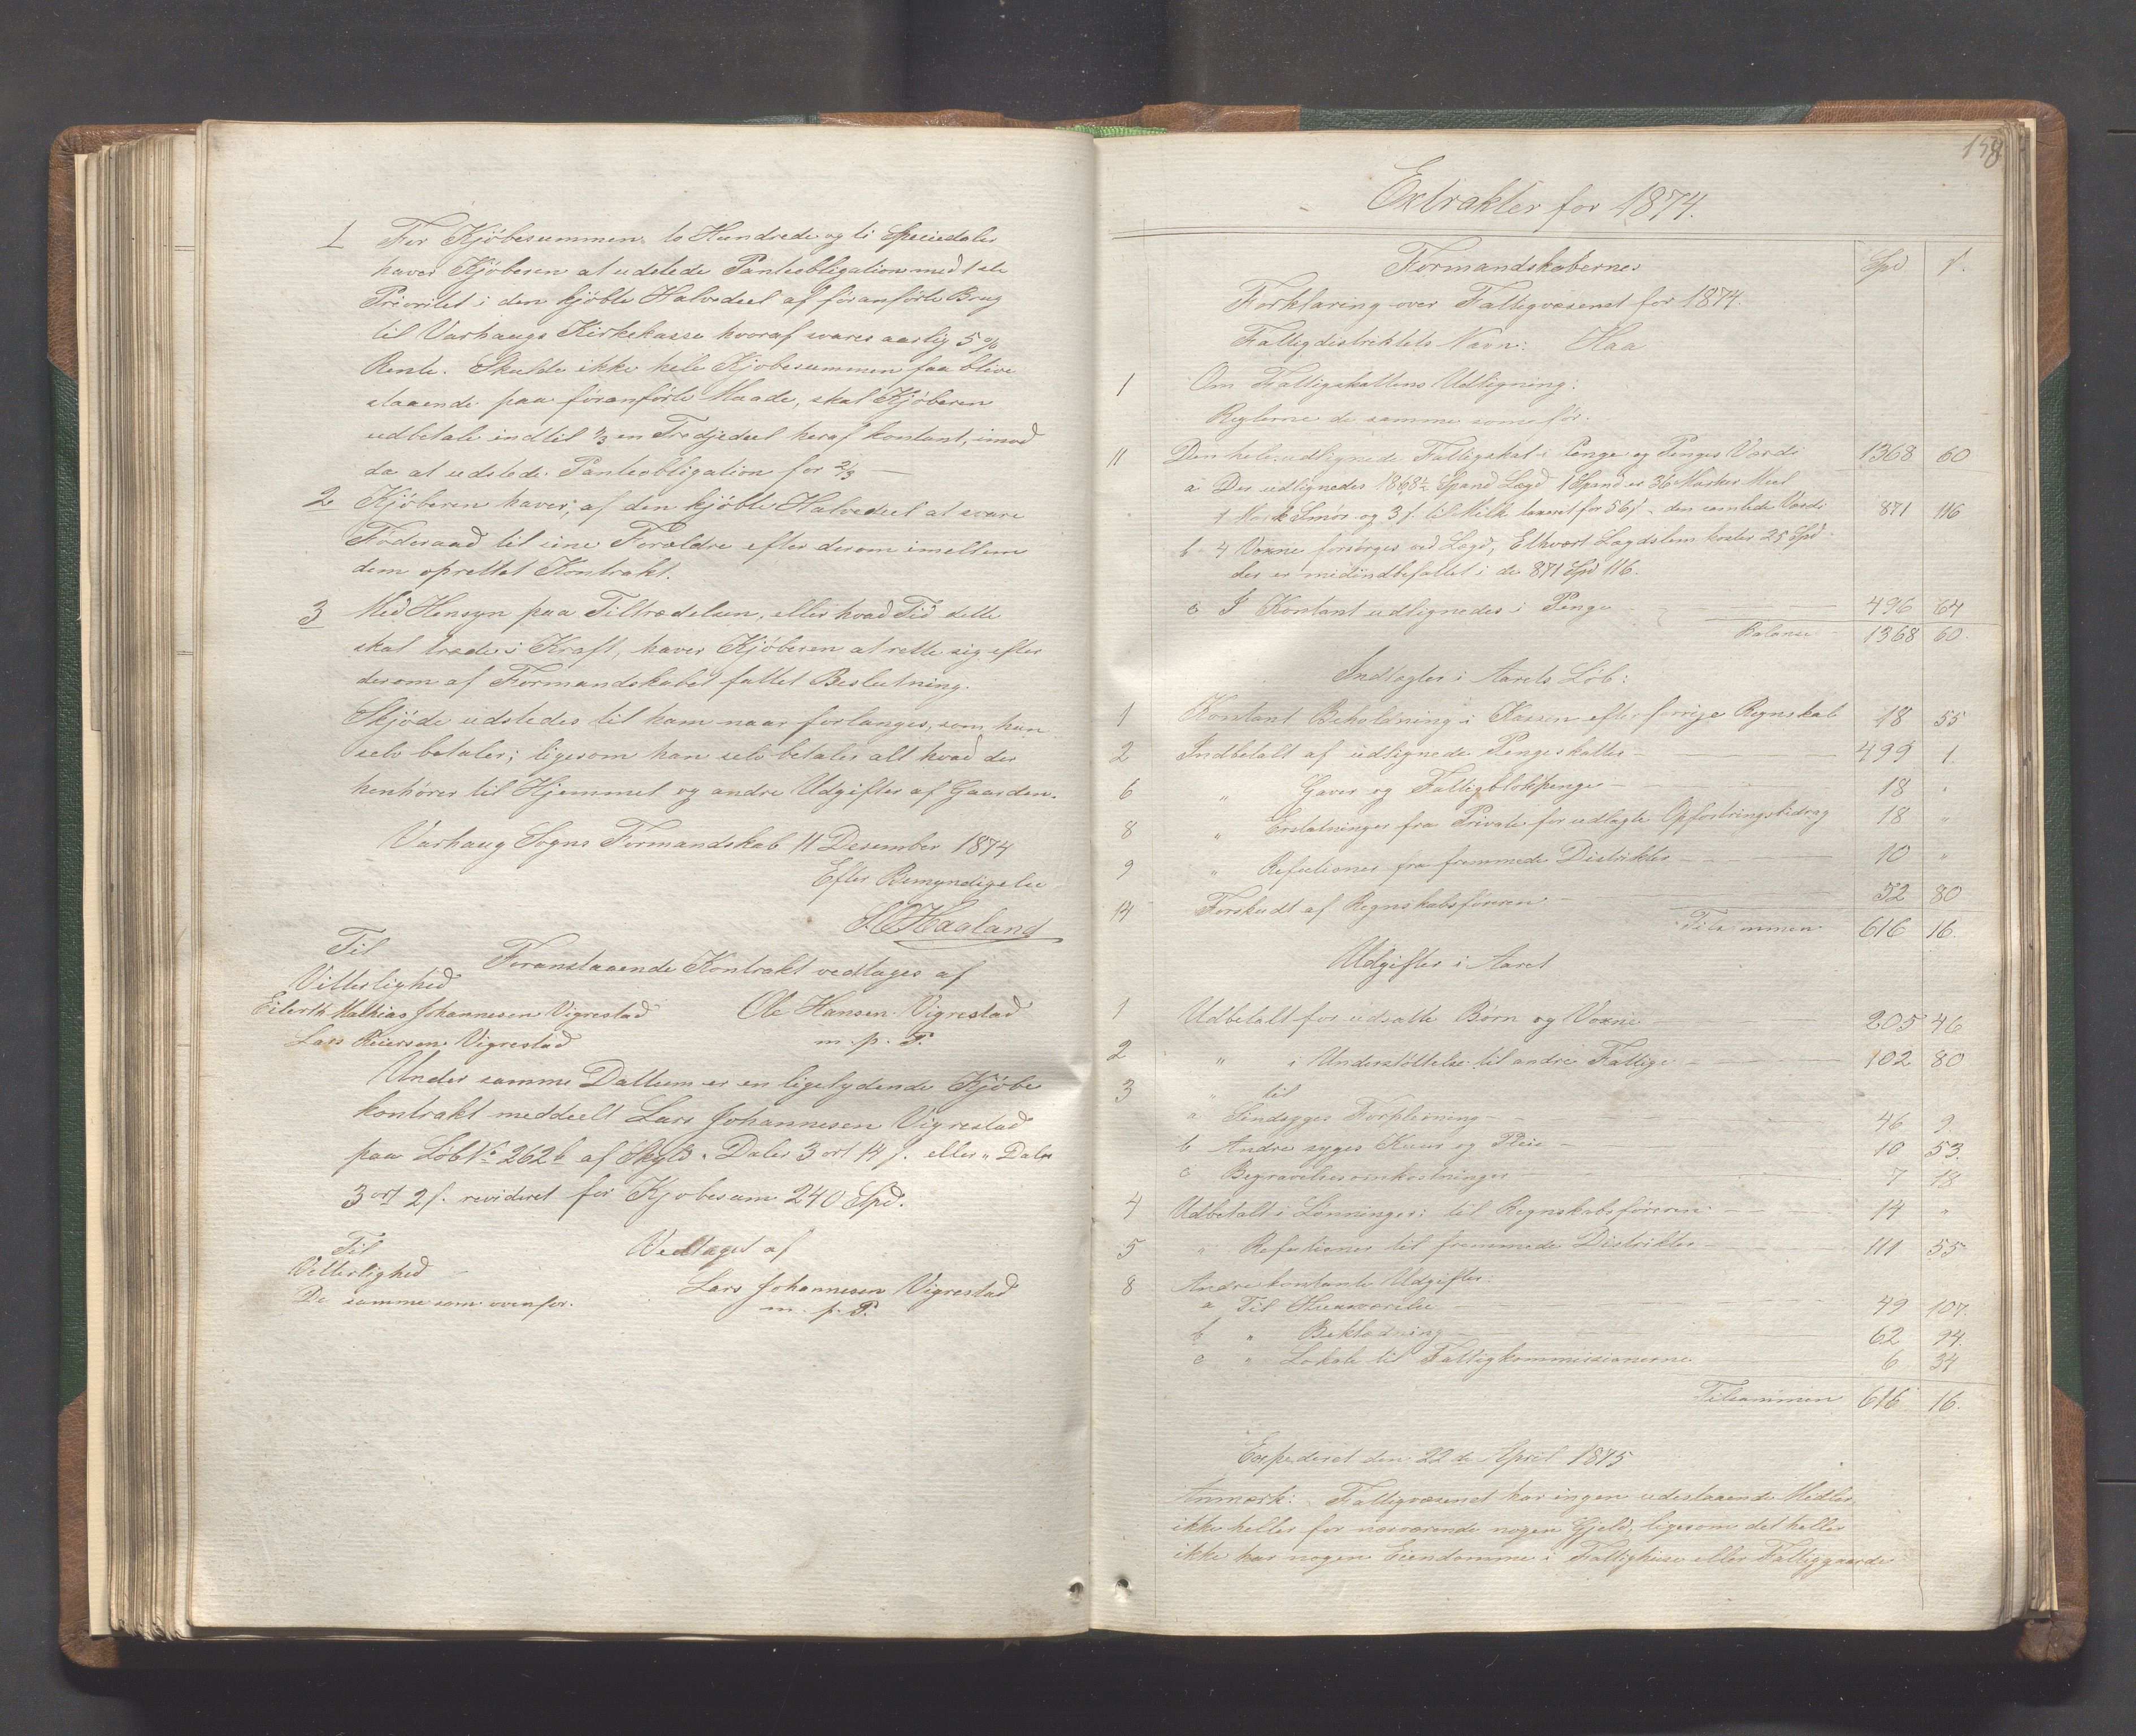 1 For Kjöbesummen to Hundrede og ti Speciedaler
haver Kjöberen at udstede Panteobligation med 1ste
Prioritet i den kjöbte Halvedeel af föranförte Brug
til Varhaugs Kirkekasse hvoraf svares aarlig 5 %
Rente. Skulde ikke hele Kjöbesummen faa blive
staaende paa föranförte Maade, skal Kjöberen
udbetale indtil 1/3 en Tredjedeel heraf kontant, imod
da at udstede Panteobligation for 2/3 —
2 Kjöberen haver, af den kjöbte Halvedeel at svare
Föderaad til sine Forældre efter derom imellem
dem oprettet Kontrakt.
3 Med Hensyn paa Tiltrædelsen, eller hvad Tid dette
skal træde i Kraft, haver Kjöberen at rette sig efter
derom af Formandskabet fattet Beslutning.
Skjöde udstedes til ham naar forlanges, som han
selv betaler; ligesom han selv betaler alt hvad der
henhörer til Hjemmel og andre Udgifter af Gaarden.
Varhaug Sogns Formandskab 11 Desember 1874
Efter Bemyndigelse
Haaland
Til Foranstaaende Kontrakt vedtages af
Vitterlighed
Eilerth Mathias Johannesen Vigrestad Ole Hansen Vigrestad
Lars Reiersen Vigrestad m. p. P.
Under samme Dattum er en ligelydende Kjöbe
kontrakt meddeelt Lars Johannesen Vigrestad
paa Löb No 262b af Skyld " Daler 3 ort 14 s. eller " Daler
3 ort 2 s. revideret for Kjöbesum 240 Spd.
Til Vedtaget af
Vitterlighed
De samme som ovenfor. Lars Johannesen Vigrestad
m. p. P.
158
Extrakter for 1874.
Formandskabernes Spd s.
Forklaring over Fattigvæsenet for 1874.
Fattigdistriktets Navn: Haa
1 Om Fattigskattens Udligning:
Reglerne de samme som för.
11 Den hele udlignede Fattigskat i Penge og Penges Værdi 1368 60
a Der udlignedes 1868½ Spand Lægd 1 Spand er 36 Marker Meel
1 Mark Smör og 3 s. til Melk taxeret for 56 s. den samlede Værdi 871 116
b 4 Voxne forsörges ved Lægd, Ethvert Lægdslem koster 25 Spd
der er medindbefattet i de 871 Spd 116.
c I Kontant udlignedes i Penge — 496 64
Balanse 1368 60.
Indtægter i Aarets Löb:
1 Kontant Beholdning i Kassen efter forrige Regnskab 18 55
2 Indbetalt af udlignede Pengeskatter 499 1.
6 " Gaver og Fattigblokpenge — 18 "
8 " Erstatninger fra Private for udlagte Opfostringsbidrag 18 "
9 " Refutioner fra fremmede Distrikter — 10 "
14 Forskudt af Regnskabsföreren — 52 80
Tilsammen 616 16.
Udgifter i Aaret
1 Udbetalt for udsatte Börn og Voxne 205 46
2 " i Understöttelse til andre Fattige — 102 80
3 " til
a Sindsyges Forpleining — 46 9
b Andre syges Kuur og Pleie — 10 53.
c Begravelsesomkostninger 7 18
4 Udbetalt i Lönninger: til Regnskabsföreren. — 14 "
5 " Refutioner til fremmede Distrikter 111 55
8 Andre kontante Udgifter:
a Til Huusværelse 49 107.
b " Beklædning 62 94.
c " Lokale til Fattigkommissionerne 6 34
Tilsammen 616 16.
Expederet den 22de April 1875
Anmærk: Fattigvæsenet har ingen udestaaende Midler
ikke heller for nærværende nogen Gjeld, ligesom det heller
ikke har nogen Eiendomme i Fattighuse eller Fattiggaarde